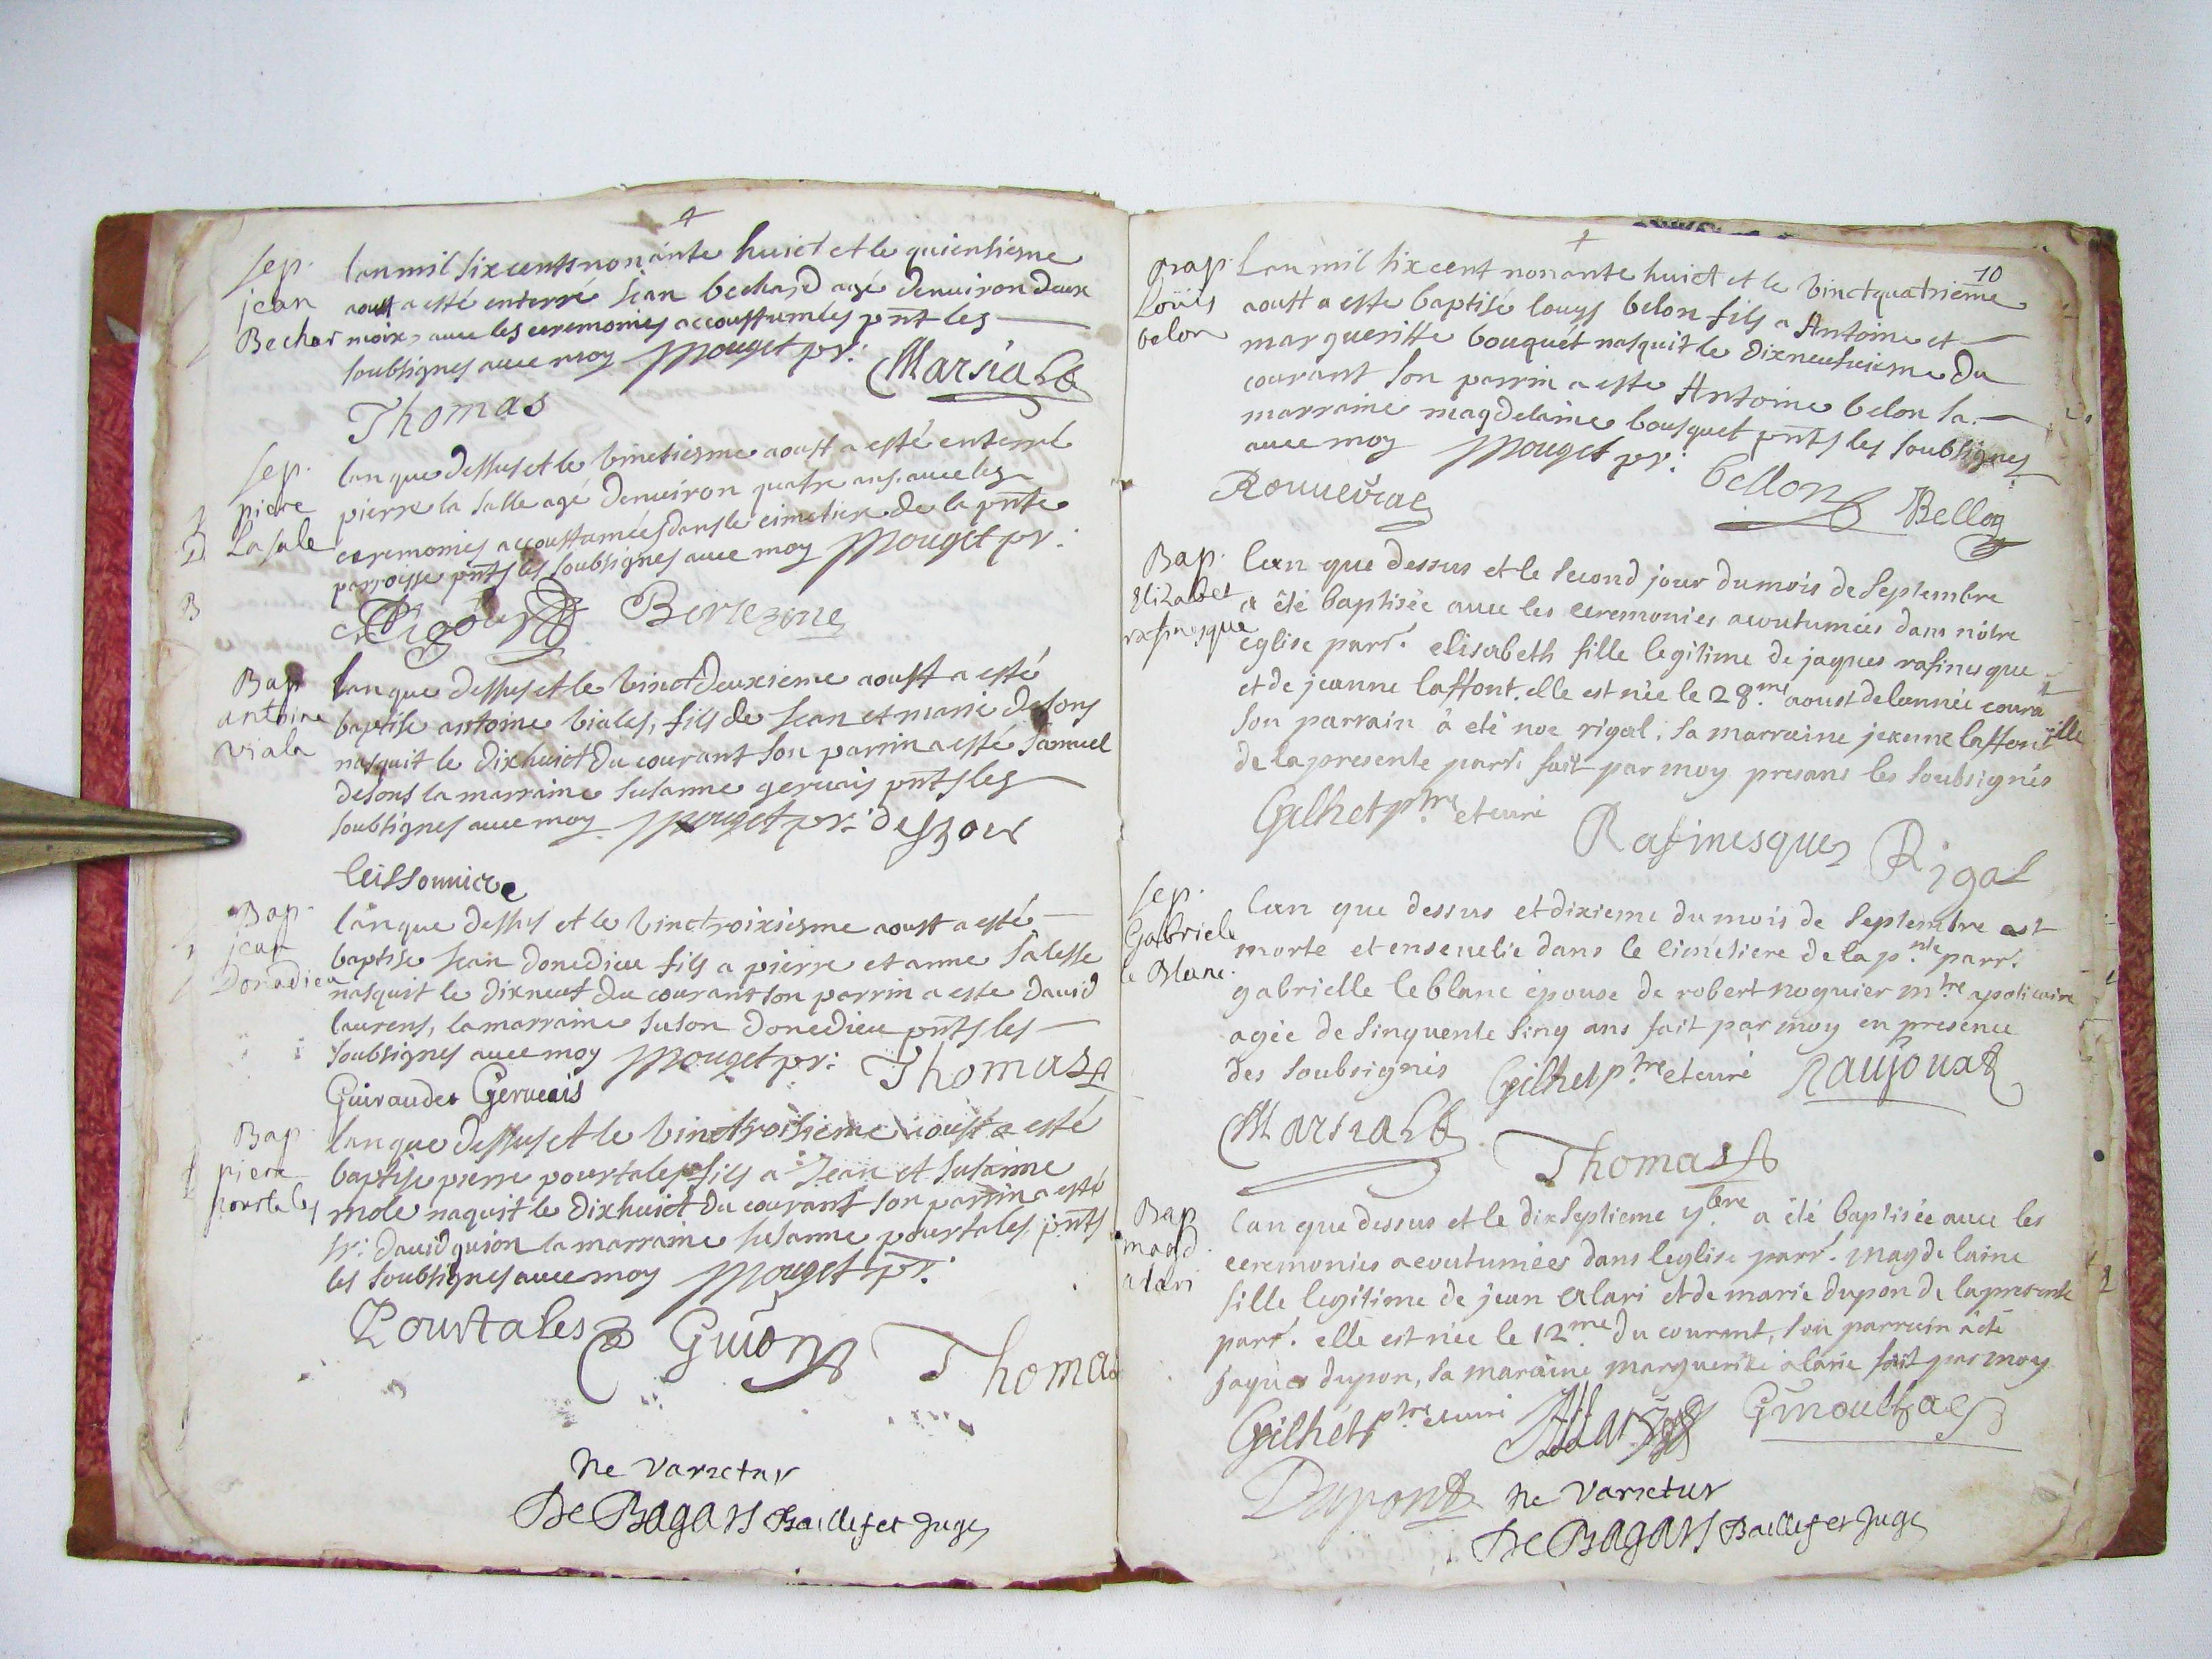 Sep. jean Bechar
lan mil six cents nonante huict et le quienhiesme
aoust a esté enterré Jean bechard agé denuiron deux
moix, auec les ceremonies accoustumées pnt les
soubsignes auec moy Mouget pr: Marsial
Thomas
Sep. piere Lasale
lan que dessus et le vinctiesme aoust a esté enterré
pierre la salle agé denuiron quatre ans, auec les
ceremonies accoustumées dans le cimetiere de la pnte
parroisse pnts les soubsignes auec moy Mouget pr:
Bertezene
Bap antoine viala
lan que dessus et le vinct deuxieme aoust a esté
baptise antoine viales, fils de Jean et marie desons
nasquit le dixhuict du courant son parrin a esté samuel
desons la marraine susanne geruais pnts les
soubsignes auec moy Mouget pr:
Bap. jean Donadieu
lan que dessus et le vinctroixiesme aoust a esté
baptise Jean donedieu fils a pierre et anne salesse
nasquit le dixneuf du courant son parrin a este dauid
laurens, la marraine suson donedieu pnts les
soubsignes auec moy Mouget pr: Thomas
Guiraudet Geruais
Bap piere pourtales
lan que dessus et le vinctroisieme aoust a esté
baptise pierre pourtales fils a Jean et susanne
mole naquit le dixhuict du courant son parrin a esté
sr: dauid guion la marraine susanne pourtales pnts
les soubsignes auec moy Mouget pr:
Pourtales Guion Thomas
Ne Varietur
De Bagars Baillif et Juge
10
Bap. Loüis belon
Lan mil sixcent nonante huict et le vinctquatrieme
aoust a este baptisé louys belon fils a Antoine et
margueritte bouquet nasquit le dixneufuieme du
courant son parrin a este Antoine belon sa
marraine magdelaine bousquet pnts les soubsignes
auec moy Mouget pr: bellon Bellon
Rouueirac
Bap. Elizabet rafinesque
lan que dessus et le second jour du mois de septembre
a été baptisée auec les ceremonies acoutumées dans nôtre
eglise parr. elisabeth fille legitime de jaques rafinesque
et de jeanne laffont. elle est née le 28me aoust de lannée coura
son parrain à eté noe rigal, sa marraine jeanne laffont fille
de la presente parr. fait par moy presans les soubsignés
Gilhet ptre et curé Rafinesque Rigal
Sep. Gabriele le Blanc.
lan que dessus et dixieme du mois de septembre est
morte et enseuelie dans le cimétiere de la pnte parr.
gabrielle leblanc épouse de robert noguier mtre apoticaire
agée de sinquente sinq ans fait par moy en presence
des soubsignés Gilhet ptre et curé Raujoux
Marsial Thomas
Bap magd. alari
lan que dessus et le dix septieme 7bre a été baptisée auec les
ceremonies acoutumées dans leglise parr. magdelaine
fille legitime de jean alari et de marie dupon de la presente
parr. elle est née le 12me du courant, son parrain à eté
jaques dupon, sa maraine marguerite alarie fait par moy
Gilhet ptre et curé
Dupont Ne Varietur
De Bagars Baillif et Juge